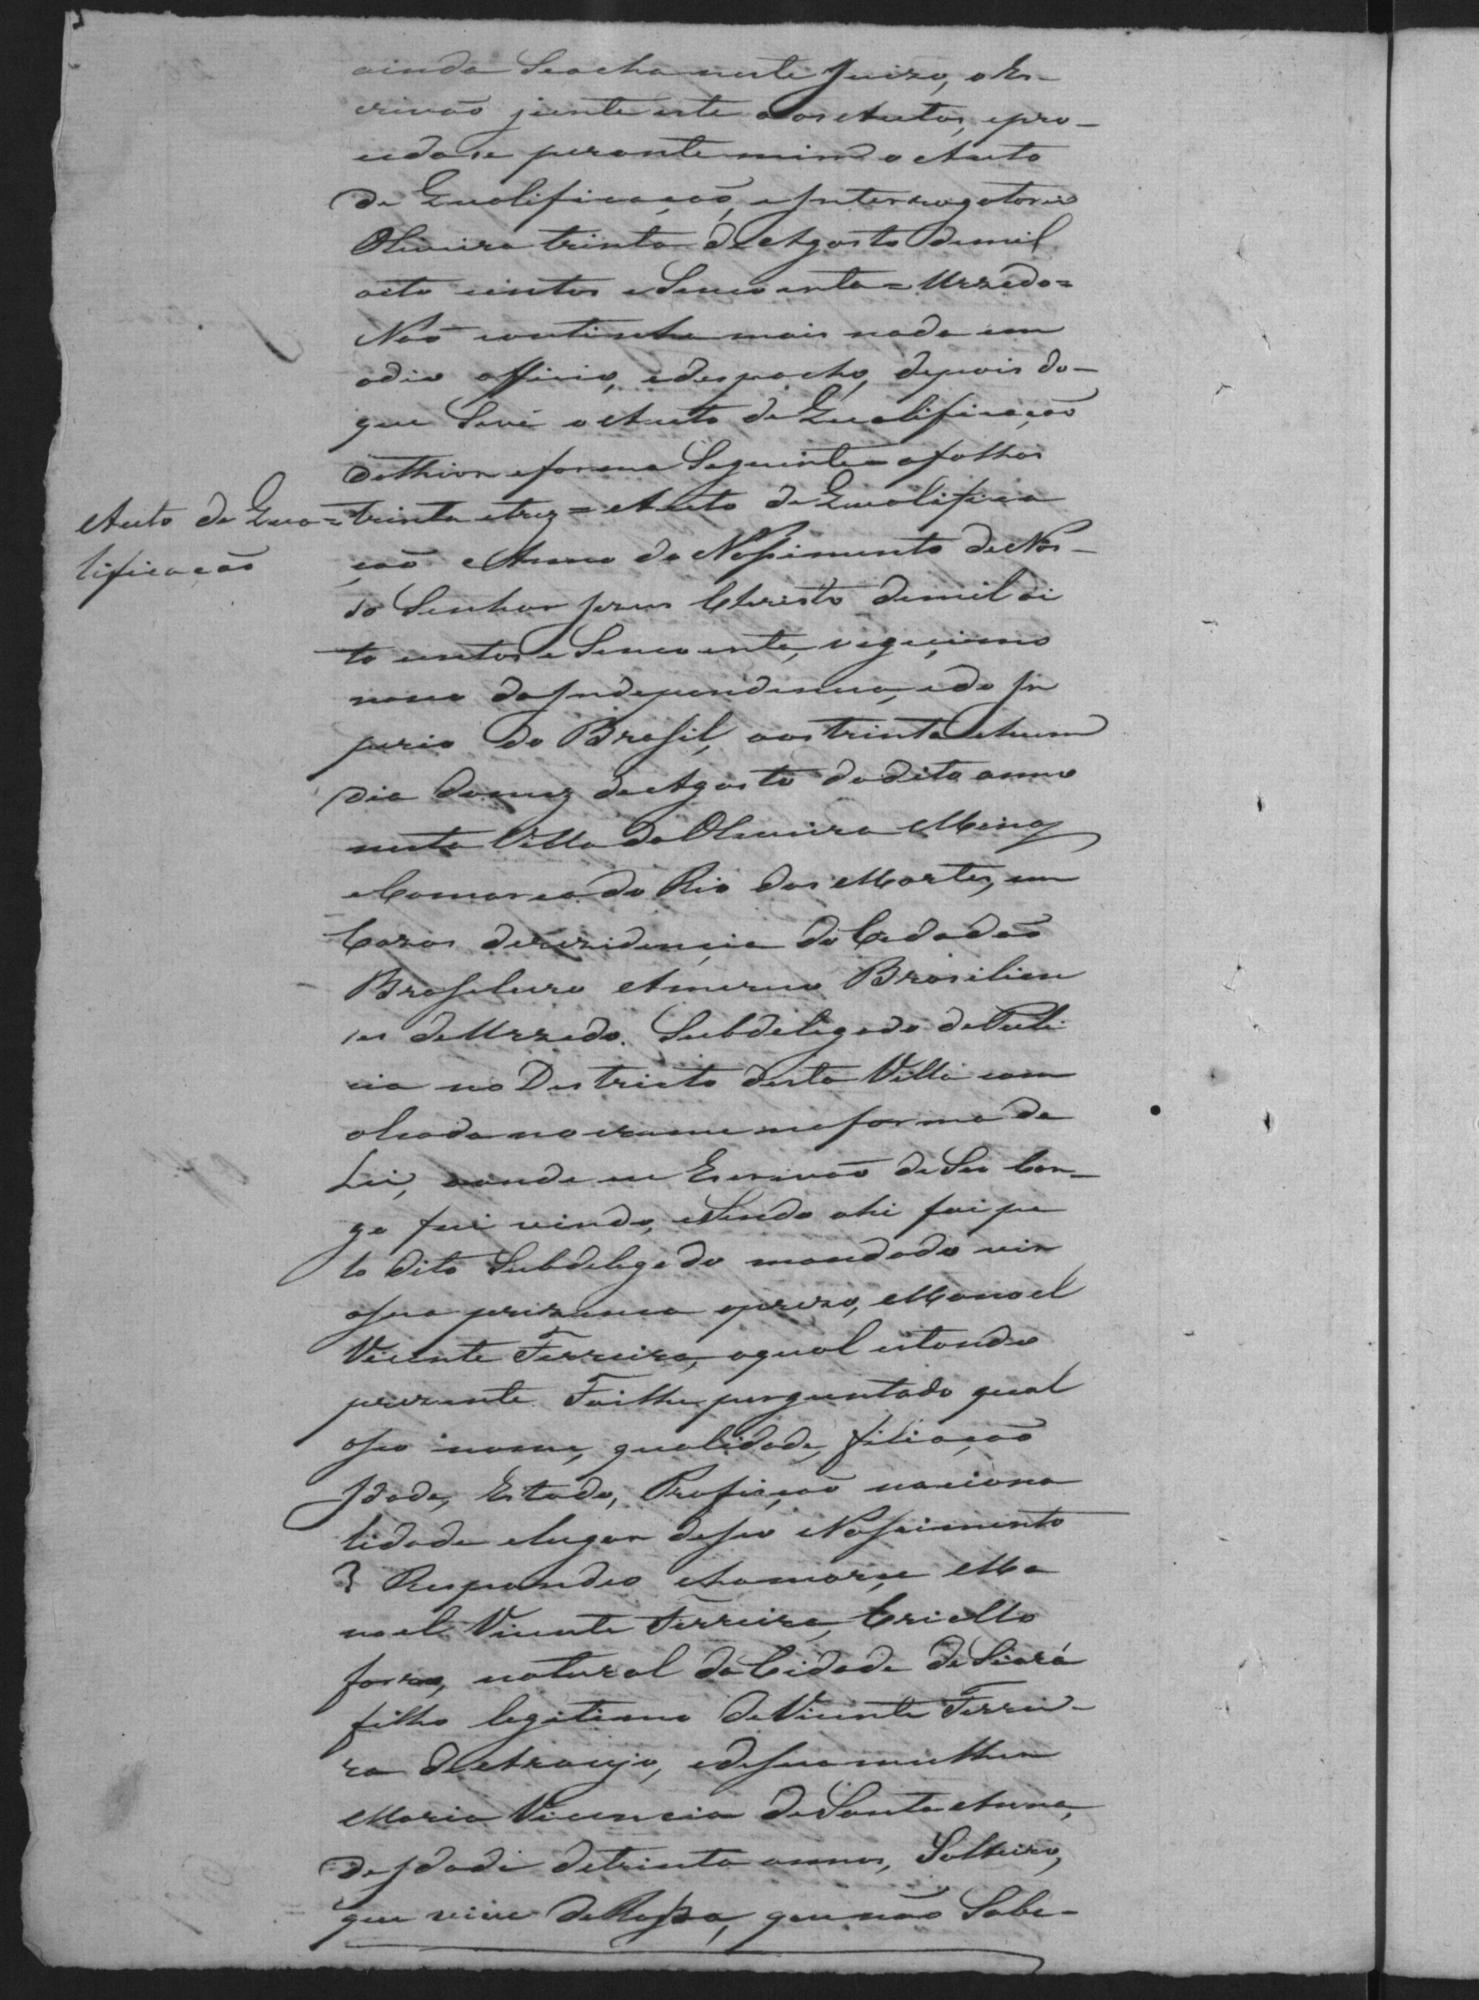 ainda Seacha neste Juizo, o Es-
crivaõ junte este aos Autos, epro-
ceda se perante mim o Auto
de Qualificaçaõ, e Interrogatorio
Oliveira trinta de Agosto demil
oito centos e Sencoenta = Urzedo =
Naõ continha mais nada em
odio officio, edespacho, depois do-
que Sevê o Auto de Qualificaçaõ
dothior eforma Seguinte afolhas
Auto de Qua=
lificacaõ
trinta etrez = Auto de Qualifica
çaõ Anno do Nascimento de Nos-
so Senhor Jesus Christo demil oi
to centos e Sencoenta, vegecimo
nono da Independencia, edo Im
perio do Brasil, aos trinta ehum
dia domez de Agosto dodito anno
nesta Villa de Oliveira Minas
e Comarca do Rio das Mortes, em
Cazas derezidencia do Cidadaõ
Brasileiro Americo Brasilien
ses de Urzedo. Subdelegado de Poli
cia no Destricto desta Villa com
alcada no crime na forma da
Lei, aonde eu Escrivaõ de Seo Car-
go fui vindo, eSendo ahi foi pe
lo dito Subdelegado mandado vir
asua prezenca oprezo, Manoel
Vicente Ferreira, oqual estando
prezente. Foilhe perguntado qual
oseo nome, qualidade, filiaçaõ
Idade, Estado, Profiçaõ naciona
lidade elugar deseo Nascimento
? Respondeo chamarse Ma
noel Vicente Ferreira, Criollo
forro, natural da Cidade de Siará
filho legitimo de Vicente Ferrei-
ra de Araujo, edesua mulher
Maria Vicencia de Santa Anna,
de Idade detrinta annos, Solteiro,
que vive de Rossa, que naõ Sabe-